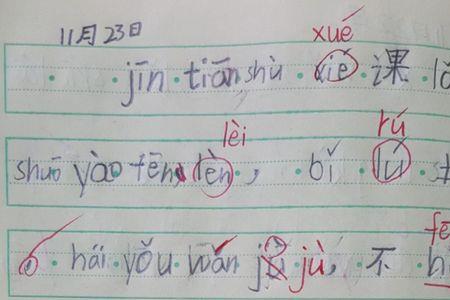 11月23日
xué
jīn tiān shù xié 课
lèi rú
shuō yào fēn lèn, bǐ lú
hái yǒu wǎn jù, 不